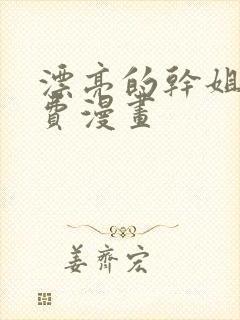 漂亮的幹姐
費漫畫
姜齊宏